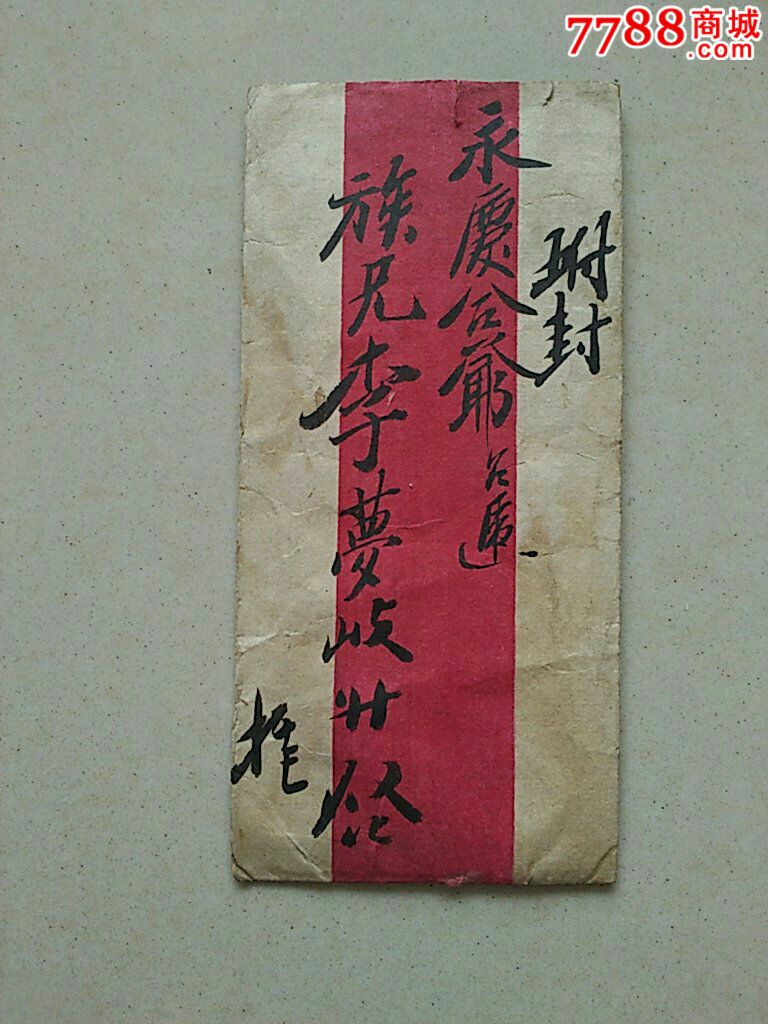 7788商城
.com
坿封
永慶公爺台
族兄李夢岐